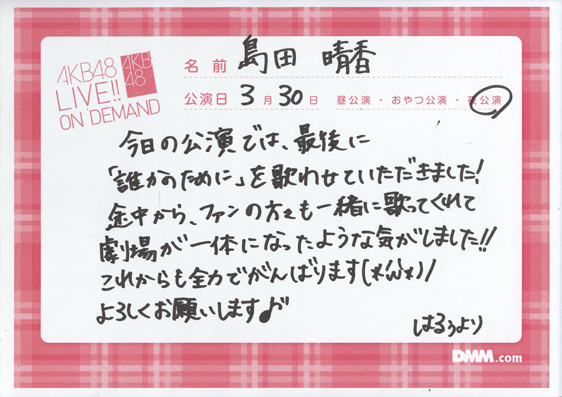 AKB48
LIVE!!
ON DEMAND
AKB
48
名前 島田 晴香
公演日 3月30日 昼公演・おやつ公演・夜公演
今日の公演では、最後に
「誰かのために」を歌わせていただきました!
途中から、ファンの方々も一緒に歌ってくれて
劇場が一体になったような気がしました!!
これからも全力でがんばります(*'ω'*)/
よろしくお願いします♪
はるぅより
DMM.com